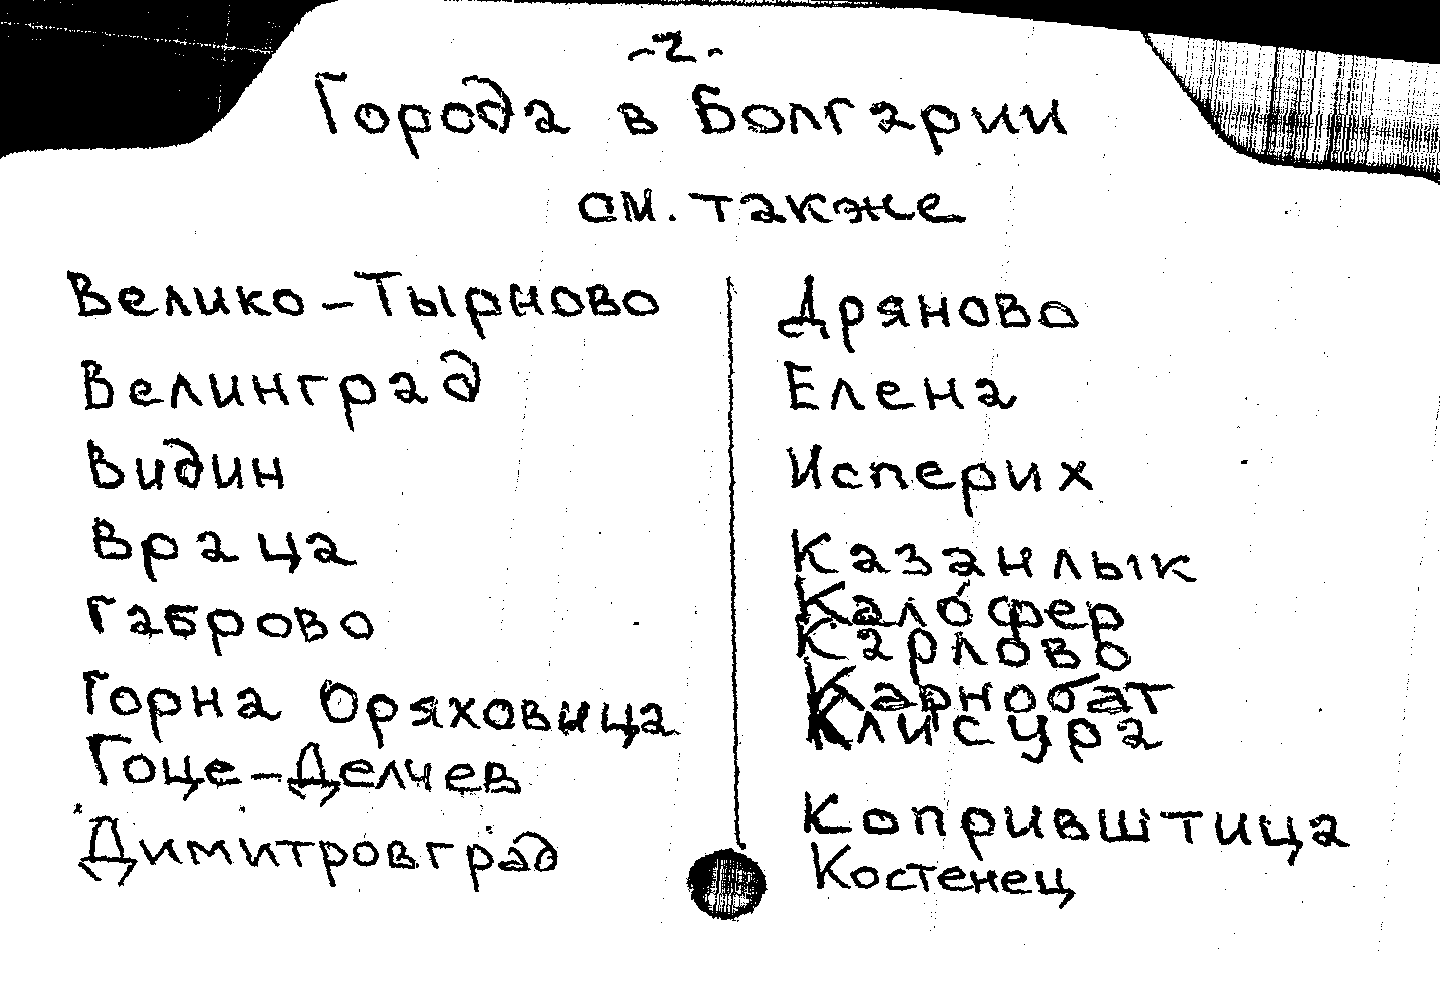 -2-
Города в Болгарии
см. также
Велико-Тырново
Велинград
Видин
Враца
Габрово
Горна Оряховица
Гоце-Делчев
Димитровград
Дряново
Елена
Исперих
Казанлык
Калофер
Карлово
Карнобат
Клисура
Копривштица
Костенец